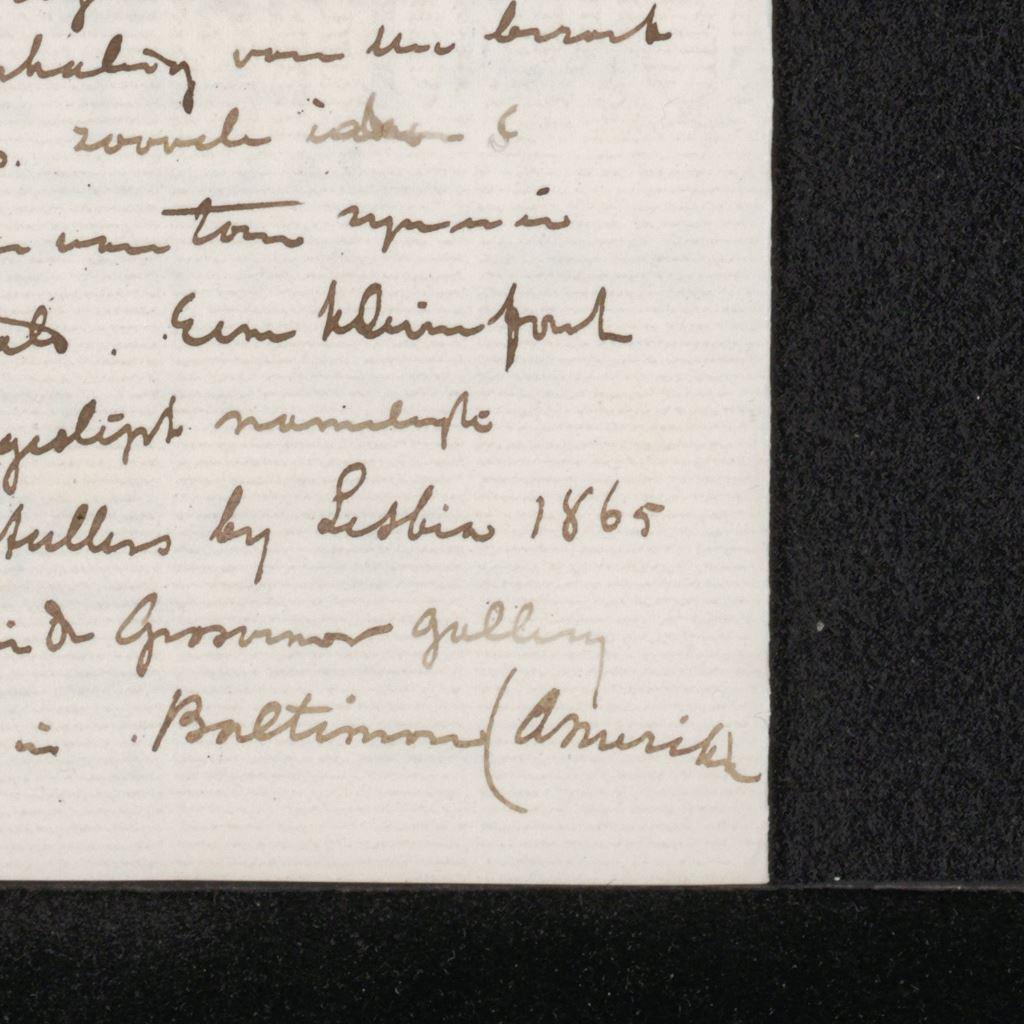 haling van uw bezoek
zooveele ideeen &
van toon zyn in
Eene kleine fout
geslipt namelyk
stellers by Lesbia 1865
in de Grosvenor gallery
in Baltimore (Amerika